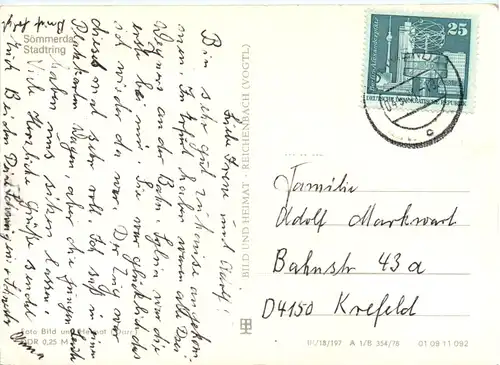 Sömmerda
Stadtring
Brief folgt
Liebe Irene und Adolf!
Bin sehr gut zuhause angekom-
men. In Erfurt haben waren alle Drei
Wagners an der Bahn, Sylvia die
erste bei mir. Sie war glücklich das
ich wieder da war. Der Zug war
diesmal sehr voll. Ich saß in einen
Platzkarten Wagen, aber die jungen Leute
haben uns sitzen lassen.
Viele Herzliche Grüße sendet
Euch Bei den Drei
Anna
BILD UND HEIMAT · REICHENBACH (VOGTL)
Foto Bild und Heimat
DDR 0,25 M
25
DEUTSCHE DEMOKRATISCHE REPUBLIK
c
Familie
Adolf Markwart
Bahnstr 43 a
D4150 Krefeld
III/18/197 A 1/B 354/78 01 09 11 092